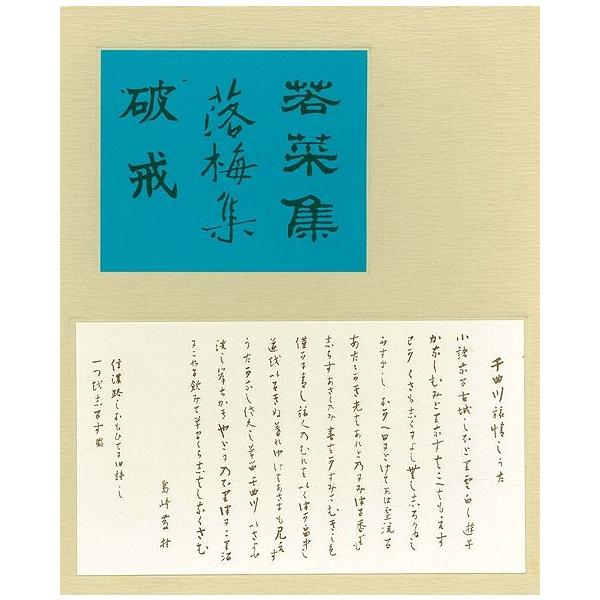 若菜集
落梅集
破戒
千曲川旅情のうた
小諸なる古城のほとり雲白く遊子
かなしむみどりなすはこべはもえず
わかくさもしくによしなししろがねの
日にとけてあは雪流る
あたゝかき光はあれど
しらずあさくのみ春はかすみてむぎのいろ
僅に青し旅人のむれはいくつか畠中の
道をいそぎぬ暮れゆけばあさまも見えず
うたかなし佐久の草笛千曲川いざよふ
波の岸ちかきやどにのぼりつにごり酒
にごれる飲みて草まくらしばしなぐさむ
島崎藤村
信濃路のおもひでに旧詩の
一つをしるす